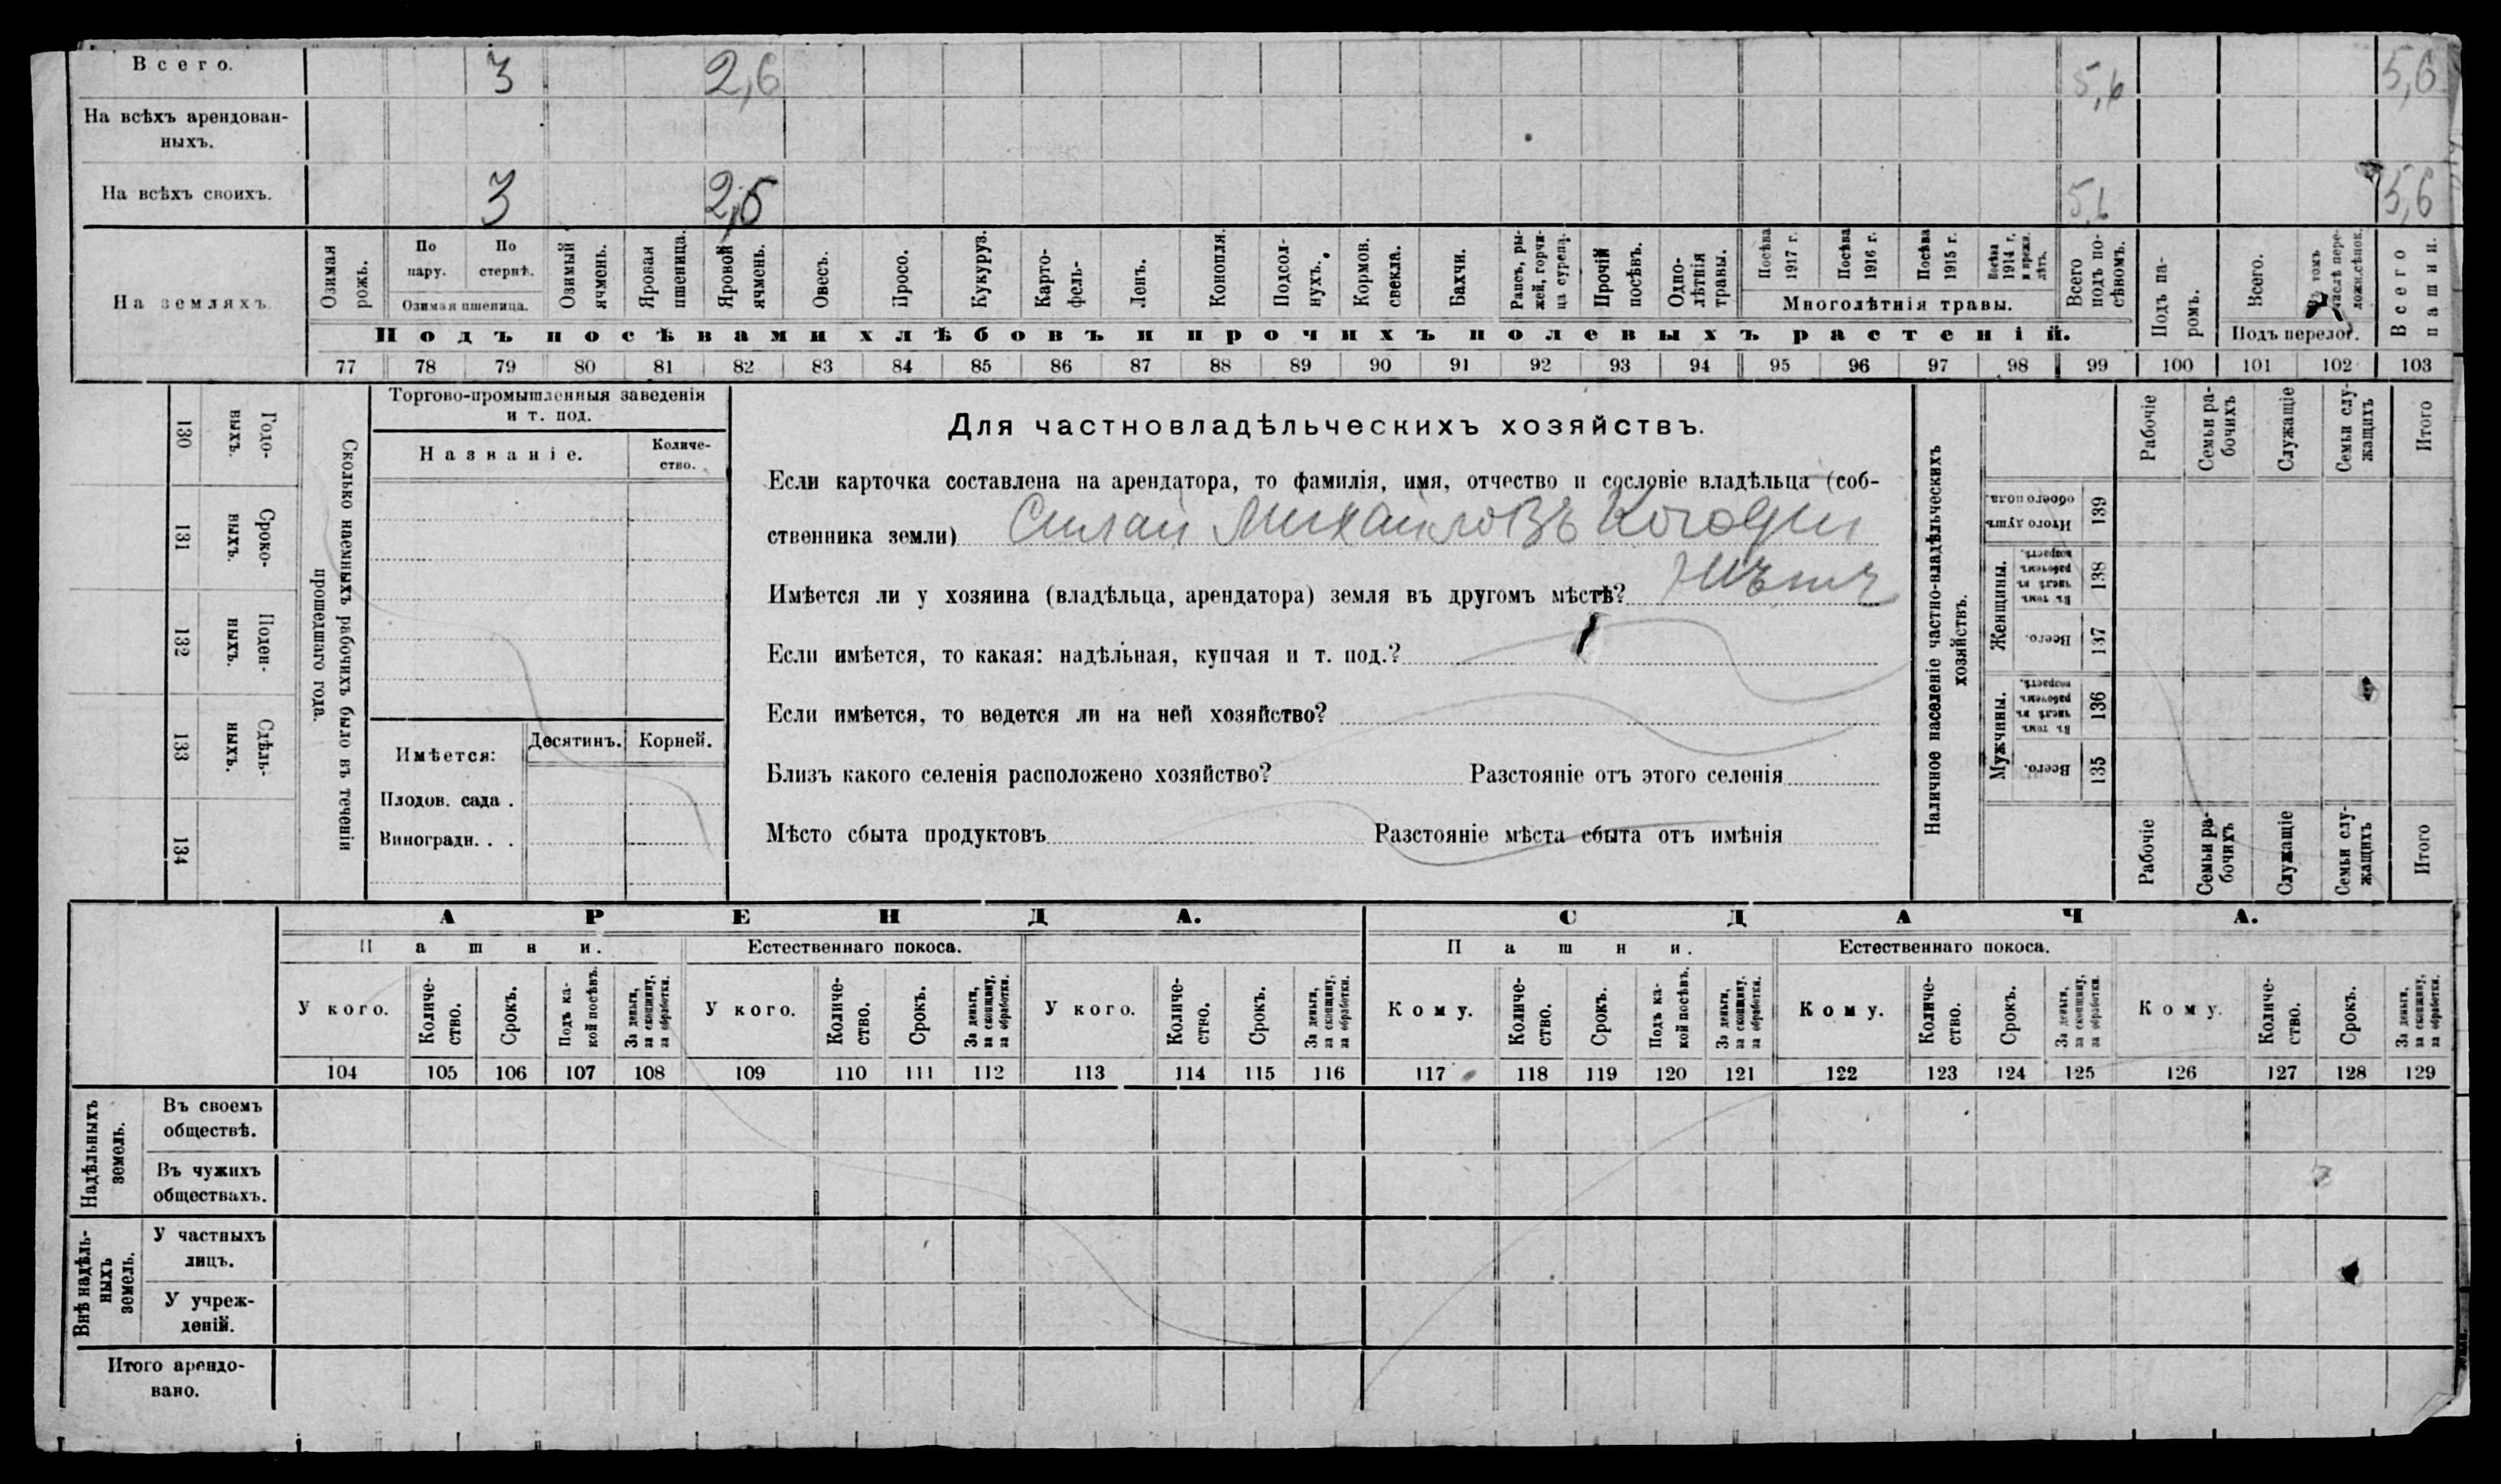 Всего. 3 2,6 5,6 5,6
На всѣхъ арендован-
ныхъ.
На всѣхъ своихъ. 3 2,6 5,6 5,6
На земляхъ
Озимая рожь.
По пару.
По стернѣ.
Озимая пшеница.
Озимый ячмень.
Яровая пшеница.
Яровой ячмень.
Овесъ.
Просо.
Кукуруз.
Карто-
фель-
Ленъ.
Конопля.
Подсол-
нухъ.
Кормов. свекла.
Бахчи.
Рапсъ, ры-
жей, горчи-
ца сурепа.
Прочій посѣвъ.
Одно-
лѣтнія травы.
Посѣва 1917 г.
Посѣва 1916 г.
Посѣва 1915 г.
Посѣва 1914 г. и прежн. лѣтъ.
Многолѣтнія травы.
Всего подъ по-
сѣвомъ.
Подъ па-
ромъ.
Всего.
Въ томъ числѣ пере-
ложн. сѣнок.
Подъ перелог.
Всего пашни.
Подъ посѣвами хлѣбовъ и прочихъ полевыхъ растеній.
77 78 79 80 81 82 83 84 85 86 87 88 89 90 91 92 93 94 95 96 97 98 99 100 101 102 103
130 Годо-
выхъ.
131 Сроко-
выхъ.
132 Поден-
ныхъ.
133 Сдѣль-
ныхъ.
134
Сколько наемныхъ рабочихъ было въ теченіи
прошедшаго года.
Торгово-промышленныя заведенія
и т. под.
Названіе.
Количе-
ство.
Имѣется:
Десятинъ. Корней.
Плодов. сада .
Виноградн. . .
Для частновладѣльческихъ хозяйствъ.
Если карточка составлена на арендатора, то фамилія, имя, отчество и сословіе владѣльца (соб-
ственника земли) Михайловъ
Имѣется ли у хозяина (владѣльца, арендатора) земля въ другомъ мѣстѣ?
Если имѣется, то какая: надѣльная, купчая и т. под.?
Если имѣется, то ведется ли на ней хозяйство?
Близъ какого селенія расположено хозяйство? Разстояніе отъ этого селенія
Мѣсто сбыта продуктовъ Разстояніе мѣста сбыта отъ имѣнія
Наличное населеніе частно-владѣльческихъ
хозяйствъ.
Рабочіе
Семьи ра-
бочихъ
Служащіе
Семьи слу-
жащихъ
Итого
Итого душъ обоего пола. 139
Женщины.
Въ томъ числѣ въ рабочемъ возрастѣ. 138
Всего. 137
Мужчины.
Въ томъ числѣ въ рабочемъ возрастѣ. 136
Всего. 135
Рабочіе
Семьи ра-
бочихъ
Служащіе
Семьи слу-
жащихъ
Итого
АРЕНДА. СДАЧА.
Пашни. Естественнаго покоса. Пашни. Естественнаго покоса.
У кого.
Количе-
ство.
Срокъ.
Подъ ка-
кой посѣвъ.
За деньги, за скопщину, за обработки.
У кого.
Количе-
ство.
Срокъ.
За деньги, за скопщину, за обработки.
У кого.
Количе-
ство.
Срокъ.
За деньги, за скопщину, за обработки.
Кому.
Количе-
ство.
Срокъ.
Подъ ка-
кой посѣвъ.
За деньги, за скопщину, за обработки.
Кому.
Количе-
ство.
Срокъ.
За деньги, за скопщину, за обработки.
Кому.
Количе-
ство.
Срокъ.
За деньги, за скопщину, за обработки.
104 105 106 107 108 109 110 111 112 113 114 115 116 117 118 119 120 121 122 123 124 125 126 127 128 129
Надѣльныхъ
земель.
Въ своемъ
обществѣ.
Въ чужихъ
обществахъ.
Внѣ надѣль-
ныхъ
земель.
У частныхъ
лицъ.
У учреж-
деній.
Итого арендо-
вано.